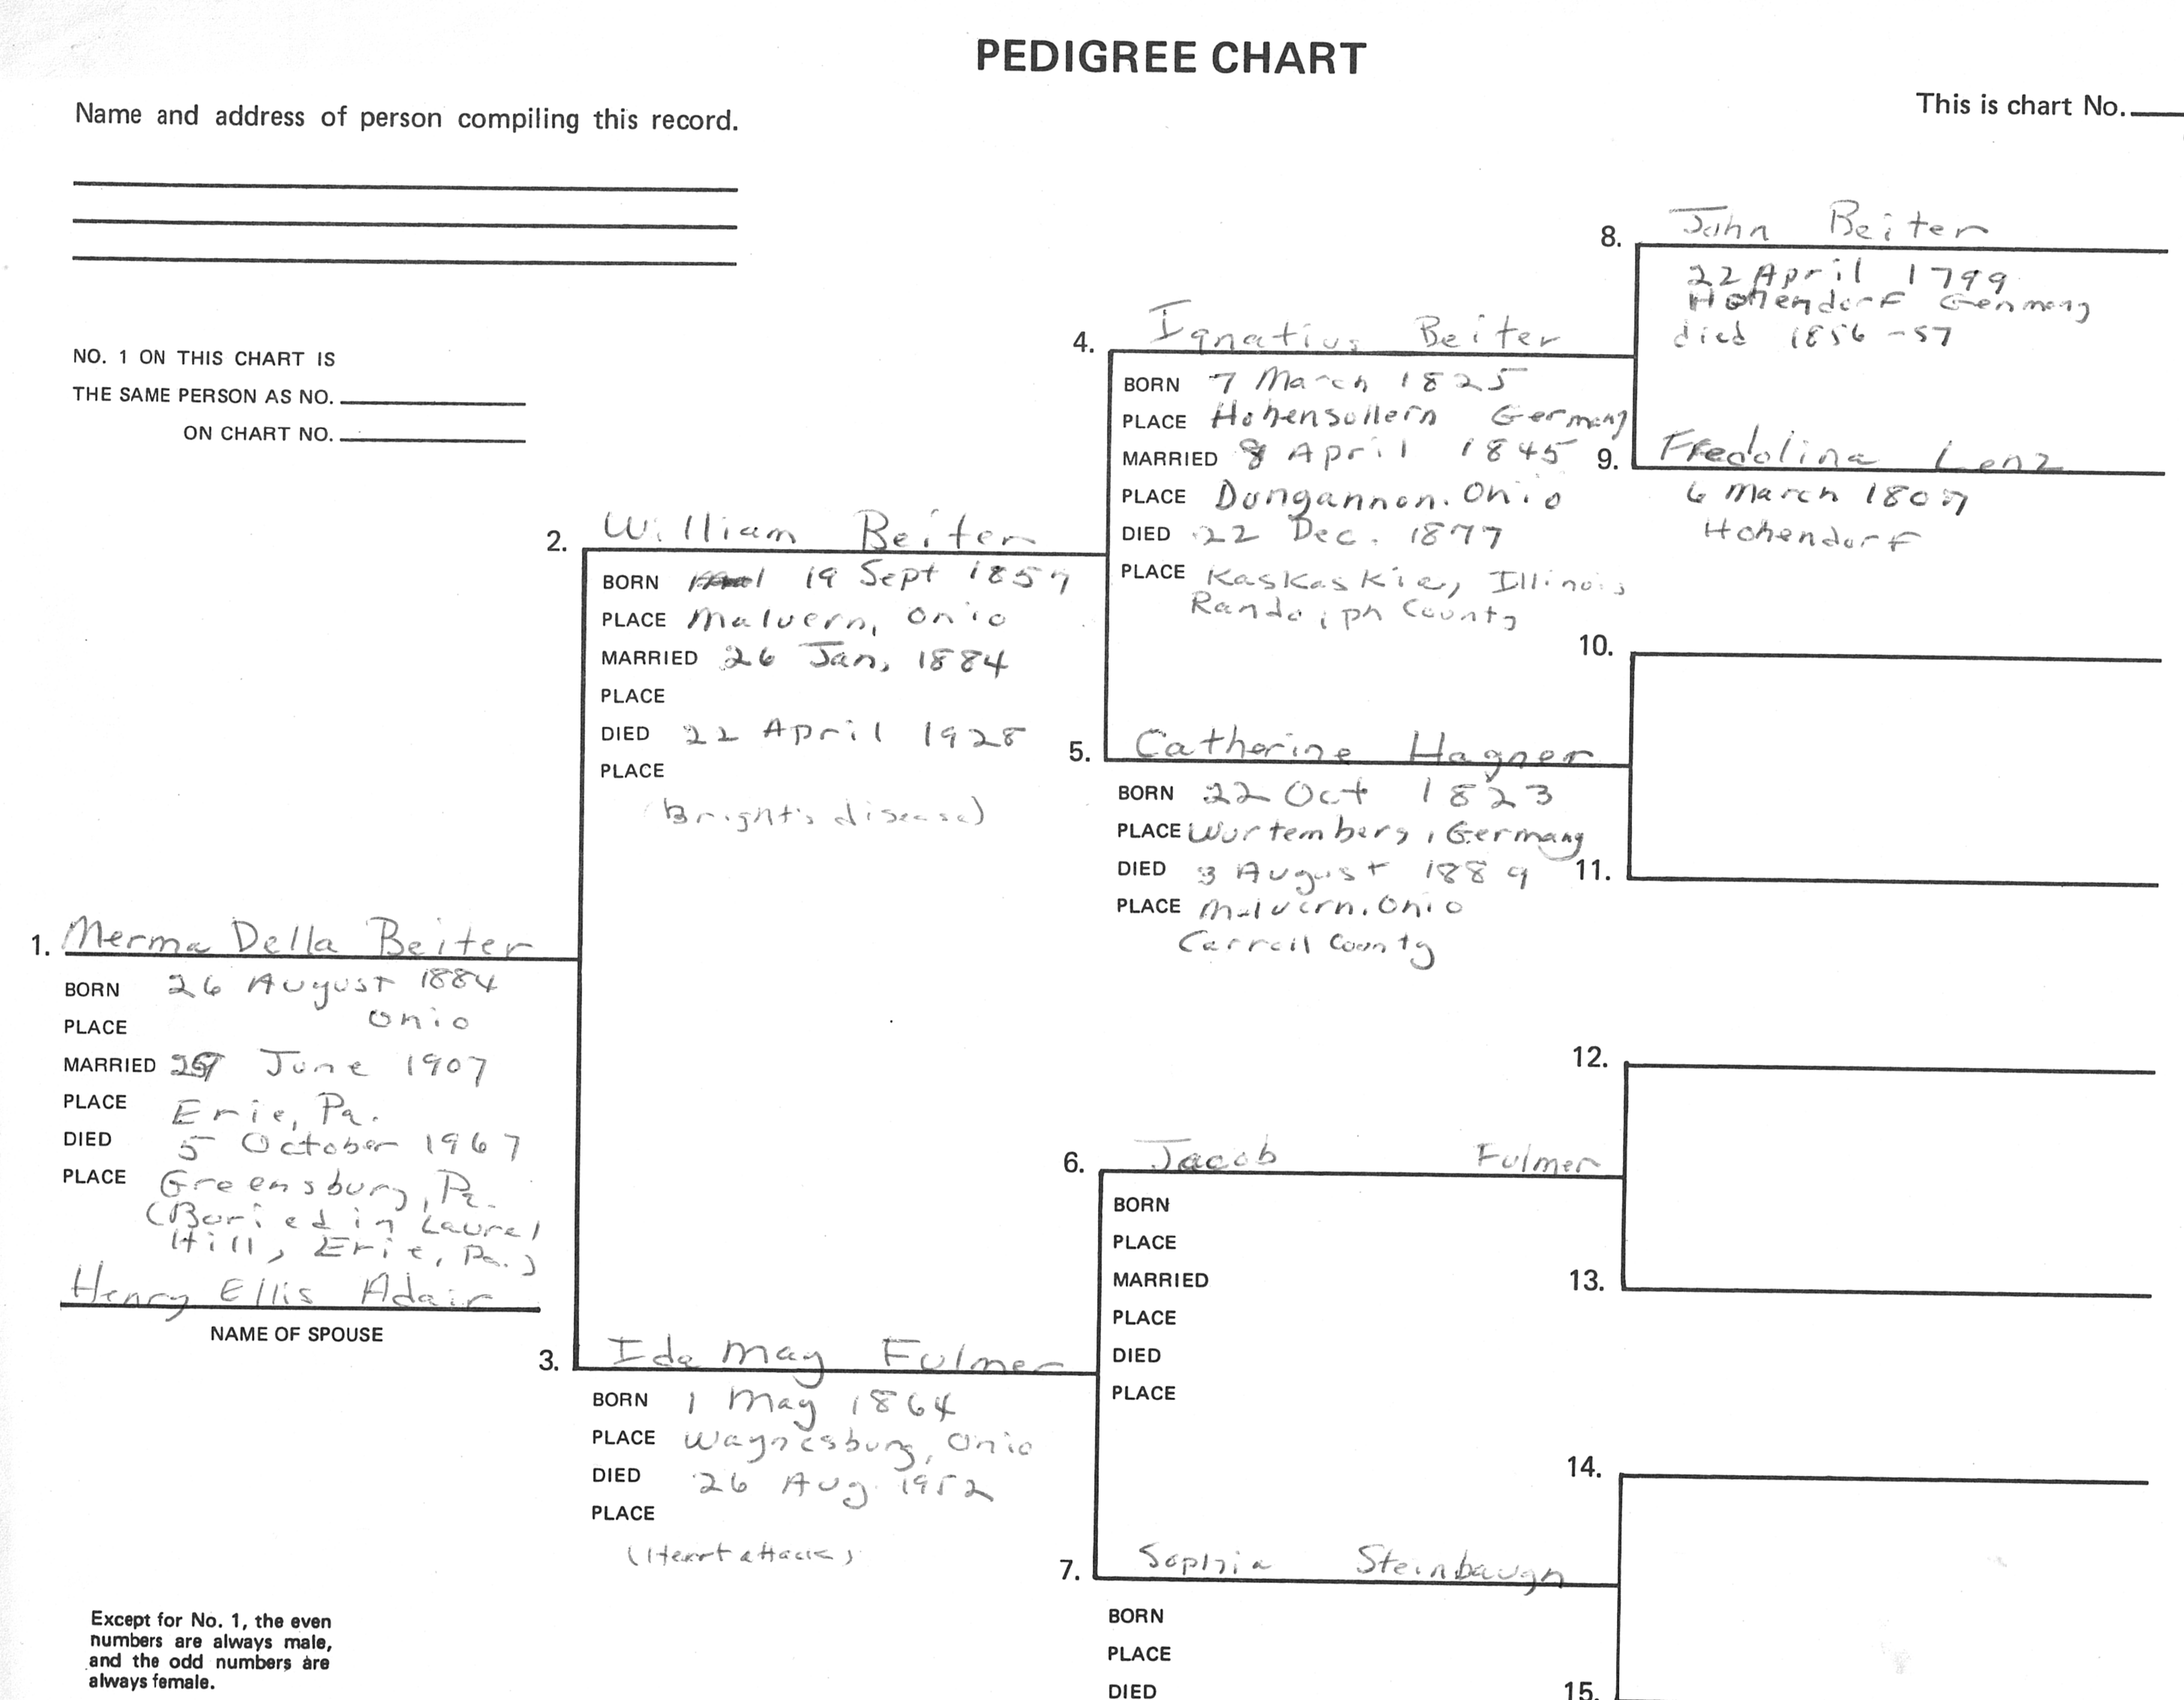 PEDIGREE CHART
Name and address of person compiling this record.
This is chart No.
NO. 1 ON THIS CHART IS
THE SAME PERSON AS NO.
ON CHART NO.
1. Merma Della Beiter
BORN 26 August 1884
PLACE Ohio
MARRIED June 1907
PLACE Erie, Pa.
DIED 5 October 1967
PLACE Greensburg, Pa.
(Buried in Laurel
Hill, Erie, Pa.)
Henry Ellis Adair
NAME OF SPOUSE
Except for No. 1, the even
numbers are always male,
and the odd numbers are
always female.
2. William Beiter
BORN 19 Sept 1857
PLACE Malvern, Ohio
MARRIED 26 Jan, 1884
PLACE
DIED 22 April 1928
PLACE
(Bright's disease)
3. Ida May Fulmer
BORN 1 May 1864
PLACE Waynesburg, Ohio
DIED 26 Aug 1952
PLACE
(Heart attack)
4. Ignatius Beiter
BORN 7 March 1825
PLACE Hohensollern Germany
MARRIED 8 April 1845
PLACE Dungannon. Ohio
DIED 22 Dec. 1877
PLACE Kaskaskia, Illinois
Randolph County
5. Catherine Hagner
BORN 22 Oct 1823
PLACE Wurtemberg, Germany
DIED 3 August 1889
PLACE Malvern, Ohio
Carroll County
6. Jacob Fulmer
BORN
PLACE
MARRIED
PLACE
DIED
PLACE
7. Sophia Steinbaugh
BORN
PLACE
DIED
8. John Beiter
22 April 1799
Hohendorf Germany
died 1856-57
9. Fredolina Lenz
6 March 1807
Hohendorf
10.
11.
12.
13.
14.
15.